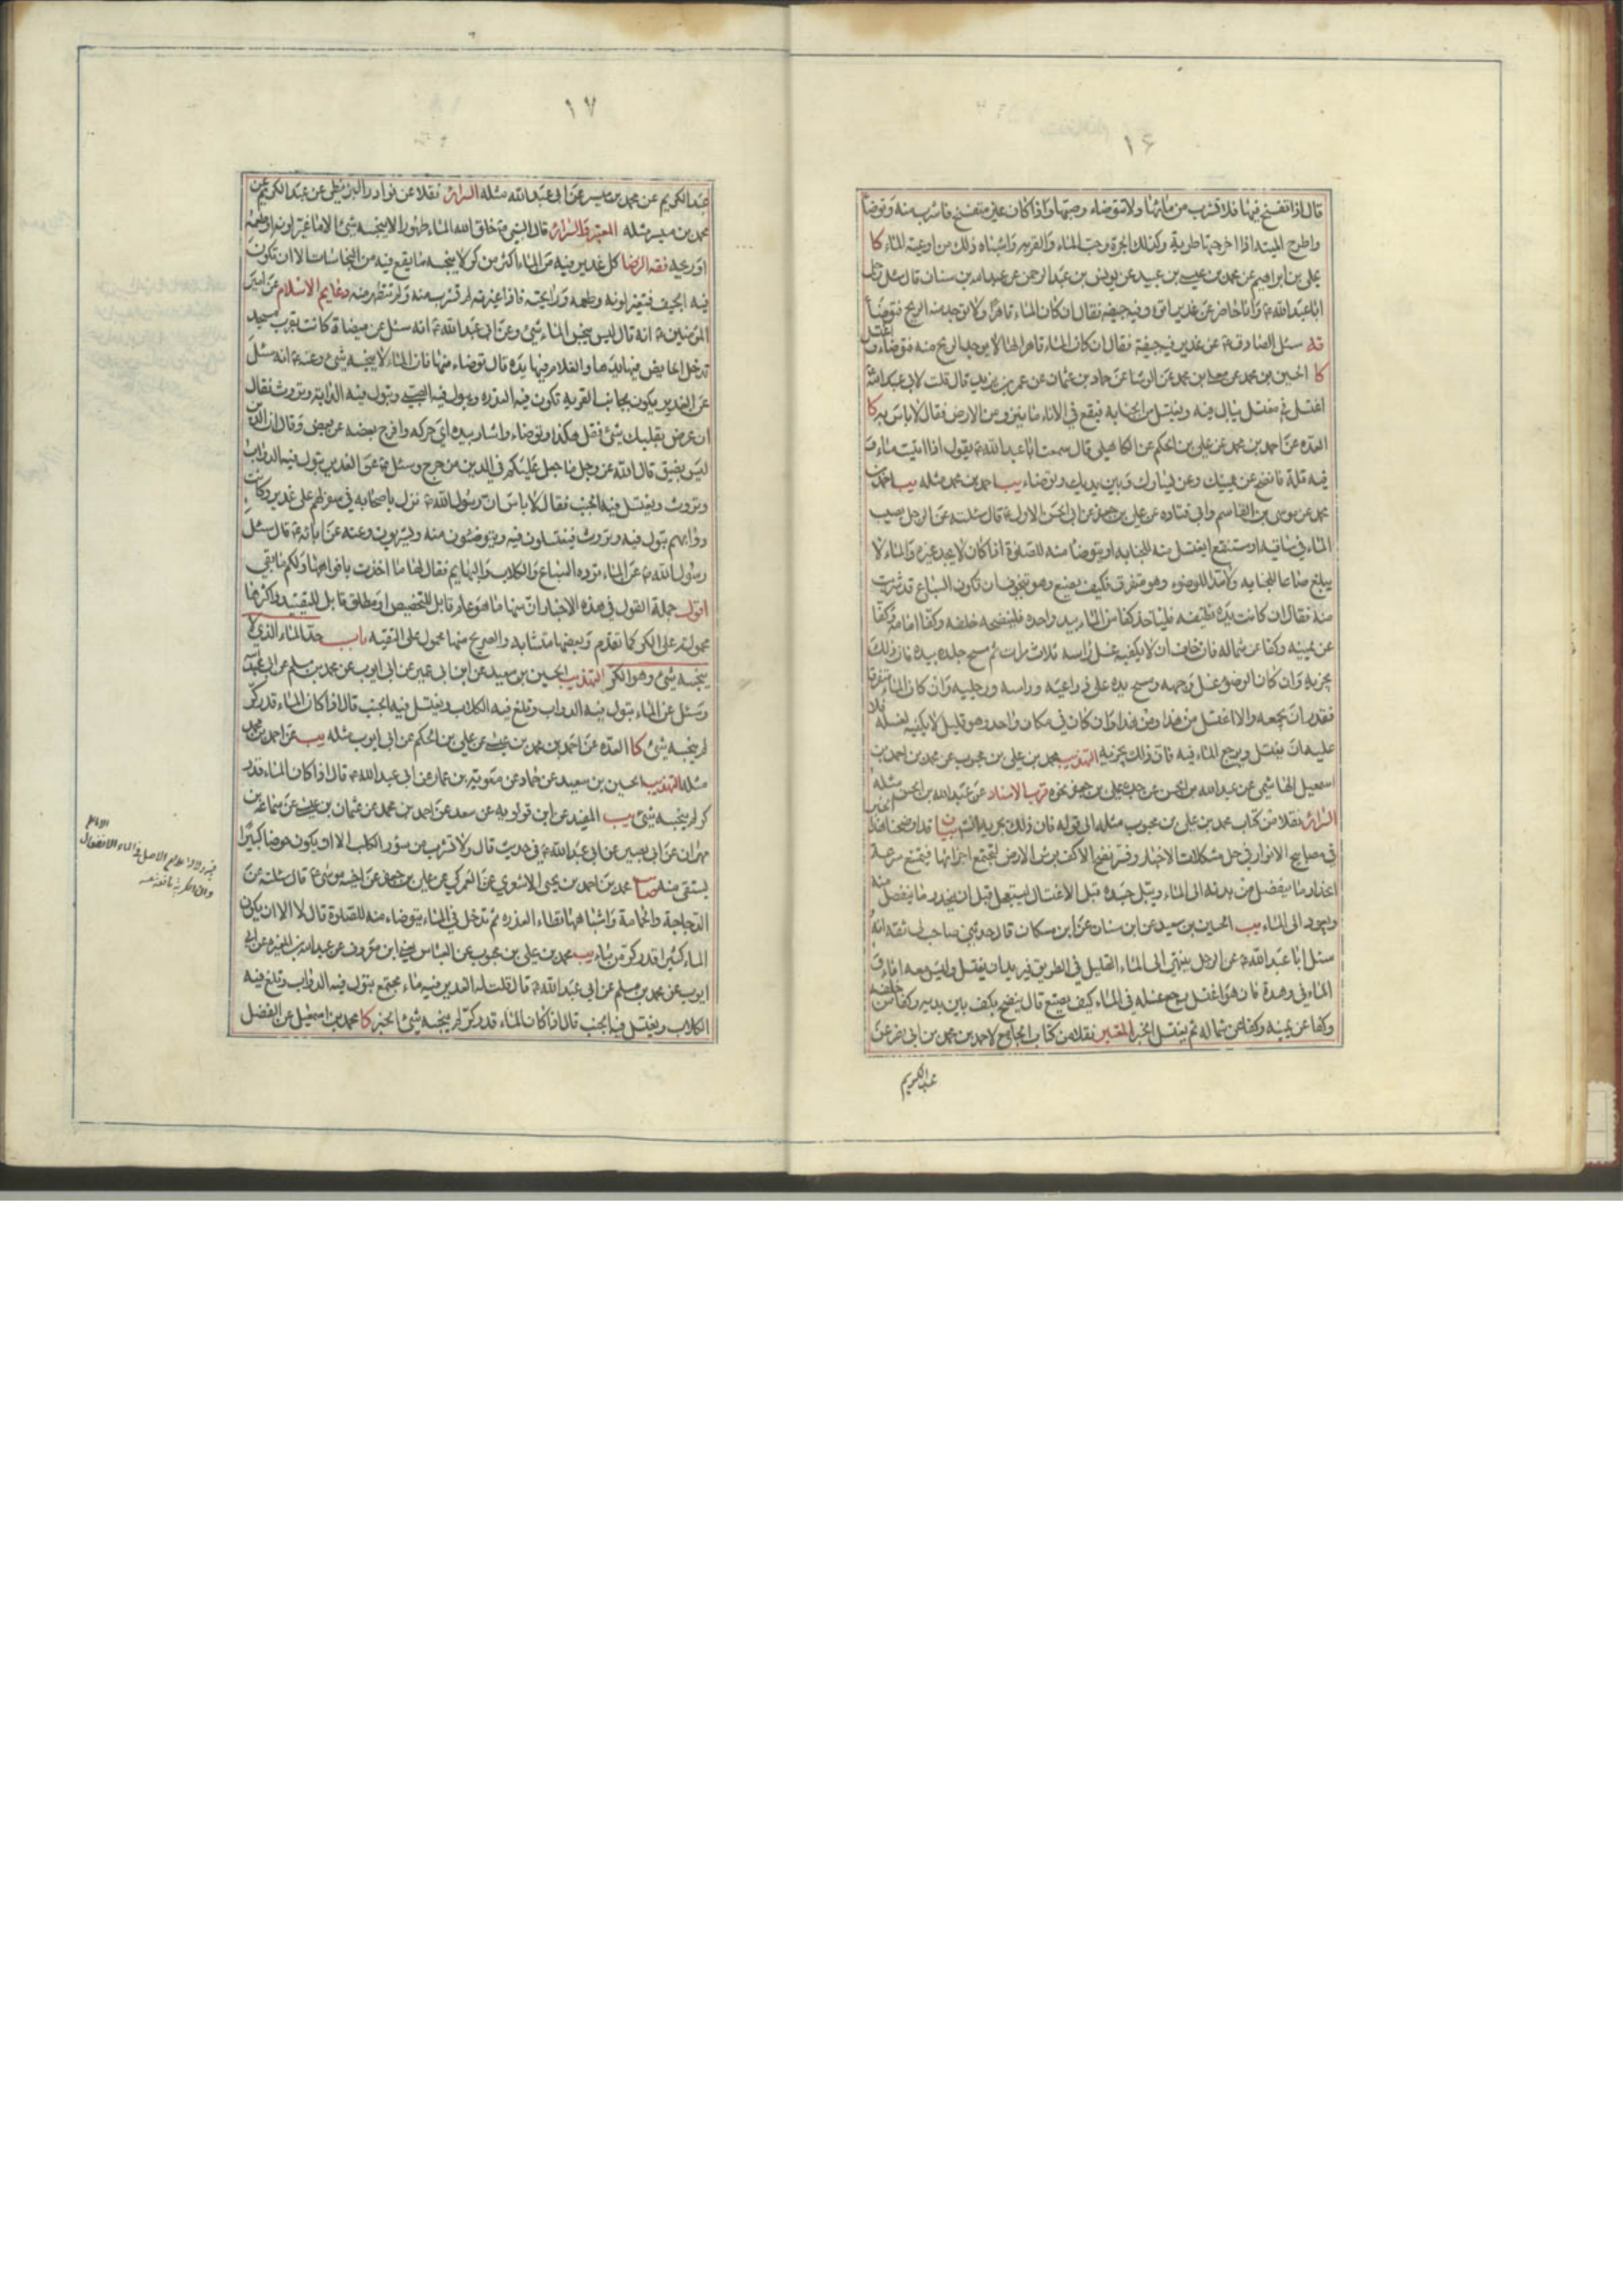 ١۶
قال اذا تفسخ فيها فلا تشرب من مائها ولا تتوضاء وصبها واذا كان غير متفسخ فاشرب منه وتوضأ
واطرح الميتة اذا اخرجتها طرية وكذلك الجرة وحب الماء والقربة واشباه ذلك من اوعية الماء كا
علي بن ابراهيم عن محمد بن عيسى بن عبيد عن يونس بن عبد الرحمن عن عبد الله بن سنان قال سئل رجل
ابا عبد الله ع وانا حاضر عن غدير اتوه وفيه جيفة فقال ان كان الماء قاهرا ولا توجد منه الريح فتوضأ
يه سئل الصادق ع عن غدير فيه جيفة فقال ان كان الماء قاهرا لها لا يوجد الريح منه فتوضاء واغتسل
كا الحسين بن محمد عن معلى بن محمد عن الوشا عن حماد بن عثمان عن عمر بن يزيد قال قلت لابي عبد الله
اغتسل في مغتسل يبال فيه ويغتسل من الجنابة فيقع في الاناء ما ينزو من الارض فقال لا باس به كا
العدة عن احمد بن محمد عن علي بن الحكم عن الكاهلي قال سمعت ابا عبد الله ع يقول اذا اتيت ماء و
فيه قلة فانضح عن يمينك وعن يسارك وبين يديك وتوضاء يب احمد بن محمد مثله يب احمد بن
محمد عن موسى بن القاسم وابي قتادة عن علي بن جعفر عن ابي الحسن الاول ع قال سئلته عن الرجل يصيب
الماء في ساقية او مستنقع ايغتسل منه للجنابة او يتوضأ منه للصلوة اذا كان لا يجد غيره والماء لا
يبلغ صاعا للجنابة ولا مدا للوضوء وهو متفرق فكيف يصنع وهو يتخوف ان تكون السباع قد شربت
منه فقال ان كانت يده نظيفة فلياخذ كفا من الماء بيد واحدة فلينضحه خلفه وكفا امامه وكفا
عن يمينه وكفا عن شماله فان خاف ان لا يكفيه غسل راسه ثلاث مرات ثم مسح جلده بيده فان ذلك
يجزيه وان كان الوضوء غسل وجهه ومسح يده على ذراعيه وراسه ورجليه وان كان الماء متفرقا
فقدر ان يجمعه والا اغتسل من هذا ومن هذا وان كان في مكان واحد وهو قليل لا يكفيه لغسله فلا
عليه ان يغتسل ويرجع الماء فيه فان ذلك يجزيه التهذيب محمد بن علي بن محبوب عن محمد بن احمد بن
اسمعيل الهاشمي عن عبد الله بن الحسن عن جده علي بن جعفر نحوه قرب الاسناد عن عبد الله بن الحسن مثله
السرائر نقلا من كتاب محمد بن علي بن محبوب مثله الى قوله فان ذلك يجزيه انشاء الله بيان قد اوضحنا هذا الخبر
في مصابيح الانوار في حل مشكلات الاخبار وفسر نضح الاكف برش الارض لتجتمع اجزائها فيمتنع سرعة
انحدار ما ينفصل من بدنه الى الماء ويبل جسده قبل الاغتسال ليستعجل قبل ان ينحدر ما ينفصل منه
ويعود الى الماء يب الحسين بن سعيد عن ابن سنان عن ابن مسكان قال حدثني صاحب لي ثقة انه
سئل ابا عبد الله ع عن الرجل ينتهي الى الماء القليل في الطريق فيريد ان يغتسل وليس معه اناء و
الماء في وهدة فان هو اغتسل رجع غسله في الماء كيف يصنع قال ينضح بكف بين يديه وكفا من خلفه
وكفا عن يمينه وكفا عن شماله ثم يغتسل الخبر المعتبر نقلا من كتاب الجامع لاحمد بن محمد بن ابي نصر عن
عبد الكريم
١٧
عبد الكريم عن محمد بن ميسر عن ابي عبد الله مثله السرائر نقلا عن نوادر البزنطي عن عبد الكريم عن
محمد بن ميسر مثله المعتبر والسرائر قال النبي ص خلق الله الماء طهورا لا ينجسه شئ الا ما غير لونه او طعمه
او ريحه فقه الرضا كل غدير فيه من الماء اكثر من كر لا ينجسه ما يقع فيه من النجاسات الا ان تكون
فيه الجيف فتغير لونه وطعمه ورايحته فاذا غيرته لم تشرب منه ولم تتطهر منه دعايم الاسلام عن امير
المؤمنين ع انه قال ليس ينجس الماء شئ وعن ابي عبد الله ع انه سئل عن ميضاة كانت بقرب مسجد
تدخل الحايض فيها يدها والغلام فيها يده قال توضاء منها فان الماء لا ينجسه شئ وعنه ع انه سئل
عن الغدير يكون بجانب القرية تكون فيه العذرة ويبول فيه الصبي وتبول فيه الدابة وتروث فقال
ان عرض بقلبك شئ فقل هكذا وتوضاء واشار بيده اي حركه وافرج بعضه عن بعض وقال ان الدين
ليس بضيق قال الله عز وجل ما جعل عليكم في الدين من حرج وسئل ع عن الغدير تبول فيه الدواب
وتروث ويغتسل فيه الجنب فقال لا باس ان رسول الله ص نزل باصحابه في سفر لهم على غدير وكانت
دوابهم تبول فيه وتروث فيغتسلون فيه ويتوضئون منه ويشربون وعنه عن ابائه ع قال سئل
رسول الله ص عن الماء ترده السباع والكلاب والبهايم فقال لها ما اخذت بافواهها ولكم ما بقي
اقول جملة القول في هذه الاخبار ان منها ما هو عام قابل للتخصيص او مطلق قابل للتقييد واكثرها
محمولة على الكر كما تقدم وبعضها متشابه والصريح منها محمول على التقية باب حد الماء الذي لا
ينجسه شئ وهو الكر التهذيب الحسين بن سعيد عن ابن ابي عمير عن ابي ايوب عن محمد بن مسلم عن ابي عبد الله
وسئل عن الماء تبول فيه الدواب وتلغ فيه الكلاب ويغتسل فيه الجنب قال اذا كان الماء قدر كر
لم ينجسه شئ كا العدة عن احمد بن محمد بن عيسى عن علي بن الحكم عن ابي ايوب مثله يب عن احمد بن محمد
مثله التهذيب الحسين بن سعيد عن حماد عن معوية بن عمار عن ابي عبد الله ع قال اذا كان الماء قدر
كر لم ينجسه شئ يب المفيد عن ابن قولويه عن سعد عن احمد بن محمد عن عثمان بن عيسى عن سماعة بن
مهران عن ابي بصير عن ابي عبد الله ع في حديث قال ولا تشرب من سؤر الكلب الا ان يكون حوضا كبيرا
يستقى منه محمد بن احمد بن يحيى الاشعري عن العمركي عن علي بن جعفر عن اخيه موسى ع قال سئلته عن
الدجاجة والحمامة واشباههما تطاء العذرة ثم تدخل في الماء يتوضاء منه للصلوة قال لا الا ان يكون
الماء كثيرا قدر كر من ماء يب محمد بن علي بن محبوب عن العباس يعني ابن معروف عن عبد الله بن المغيرة عن ابي
ايوب عن محمد بن مسلم عن ابي عبد الله ع قال قلت له الغدير فيه ماء مجتمع تبول فيه الدواب وتلغ فيه
الكلاب ويغتسل فيه الجنب قال اذا كان الماء قدر كر لم ينجسه شئ الخبر كا محمد بن اسمعيل عن الفضل